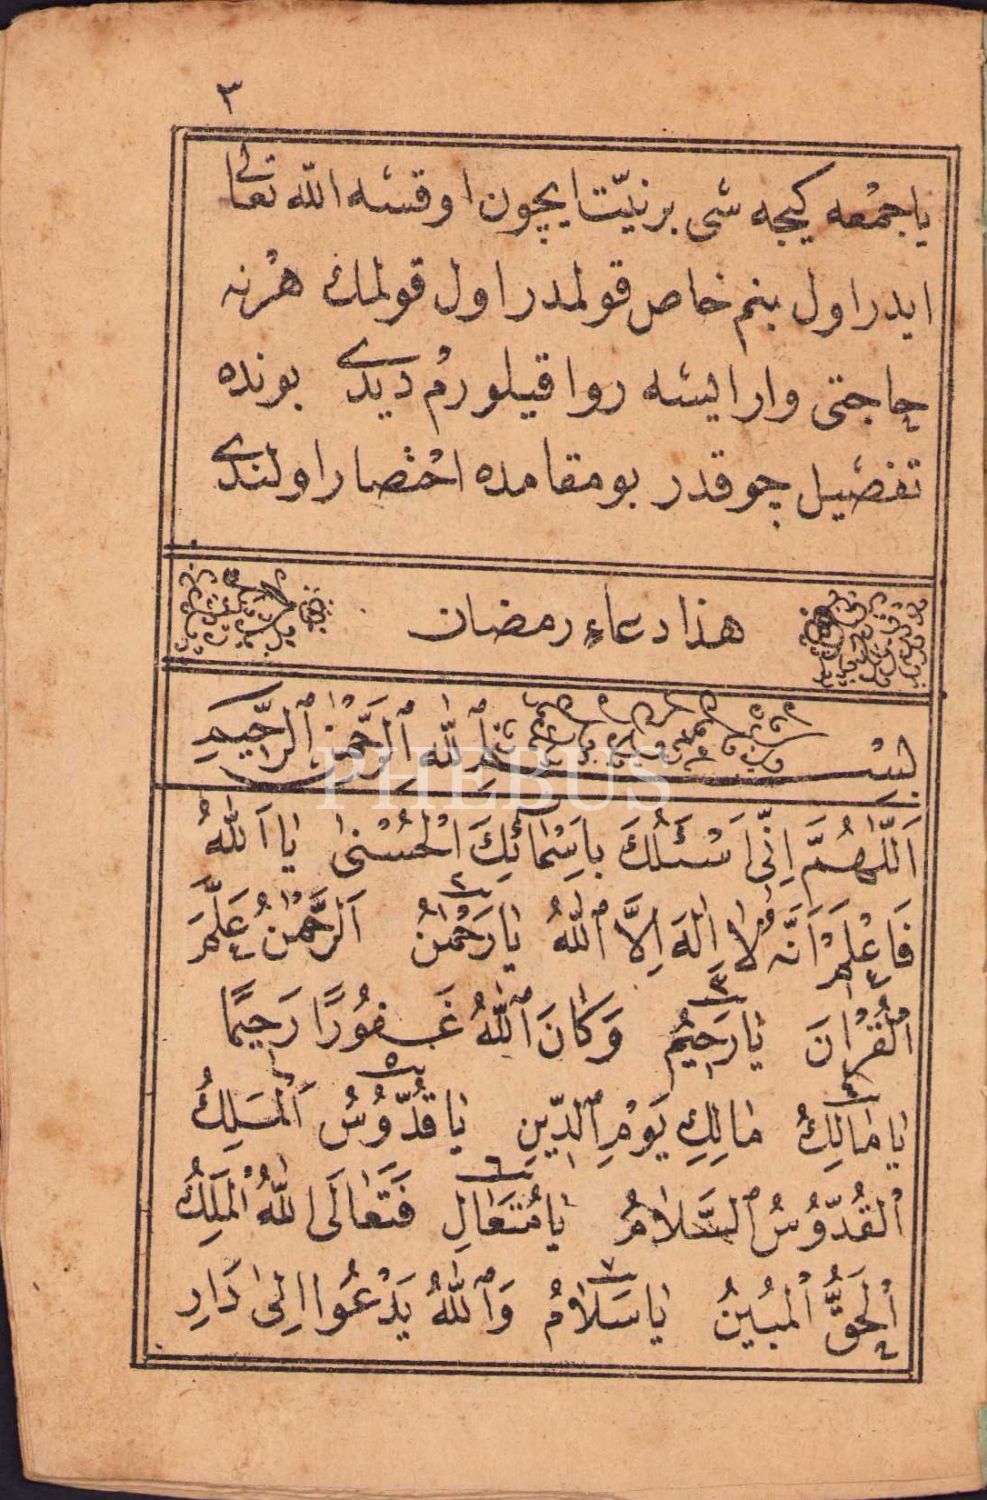 ٣
يا جمعه كيجه شى بر نيّت ايچون اوقسه الله تعالى
ايدر اول بنم خاص قولمدر اول قولمك هر نه
حاجتى وار ايسه روا قيلورم ديدى بونده
تفصيل چوقدر بو مقامده احتصار اولندى
هذا دعاء رمضان
بسم ٱللّٰه ٱلرَّحْمٰن ٱلرَّحِيم
اَللّٰهُمَّ اِنِّى اَسْئَلُكَ بِاَسْمَائِكَ الْحُسْنٰى يَا اَللّٰهُ
فَاعْلَمْ اَنَّهُ لَا اِلٰهَ اِلَّا ٱللّٰهُ يَا رَحْمٰنُ ٢ اَلرَّحْمٰنُ عَلَّمَ
ٱلْقُرْاٰنَ يَا رَحِيمُ ٣ وَكَانَ ٱللّٰهُ غَفُورًا رَحِيمًا
يَا مَالِكُ ٤ مَالِكِ يَوْمِ ٱلدِّينِ يَا قُدُّوسُ ٥ اَلْمَلِكُ
ٱلْقُدُّوسُ ٱلسَّلَامُ يَا مُتَعَالِ ٦ فَتَعَالَى اللّٰهُ الْمَلِكُ
ٱلْحَقُّ ٱلْمُبِينُ يَا سَلَامُ ٧ وَٱللّٰهُ يَدْعُوا اِلٰى دَارِ
PHEBUS